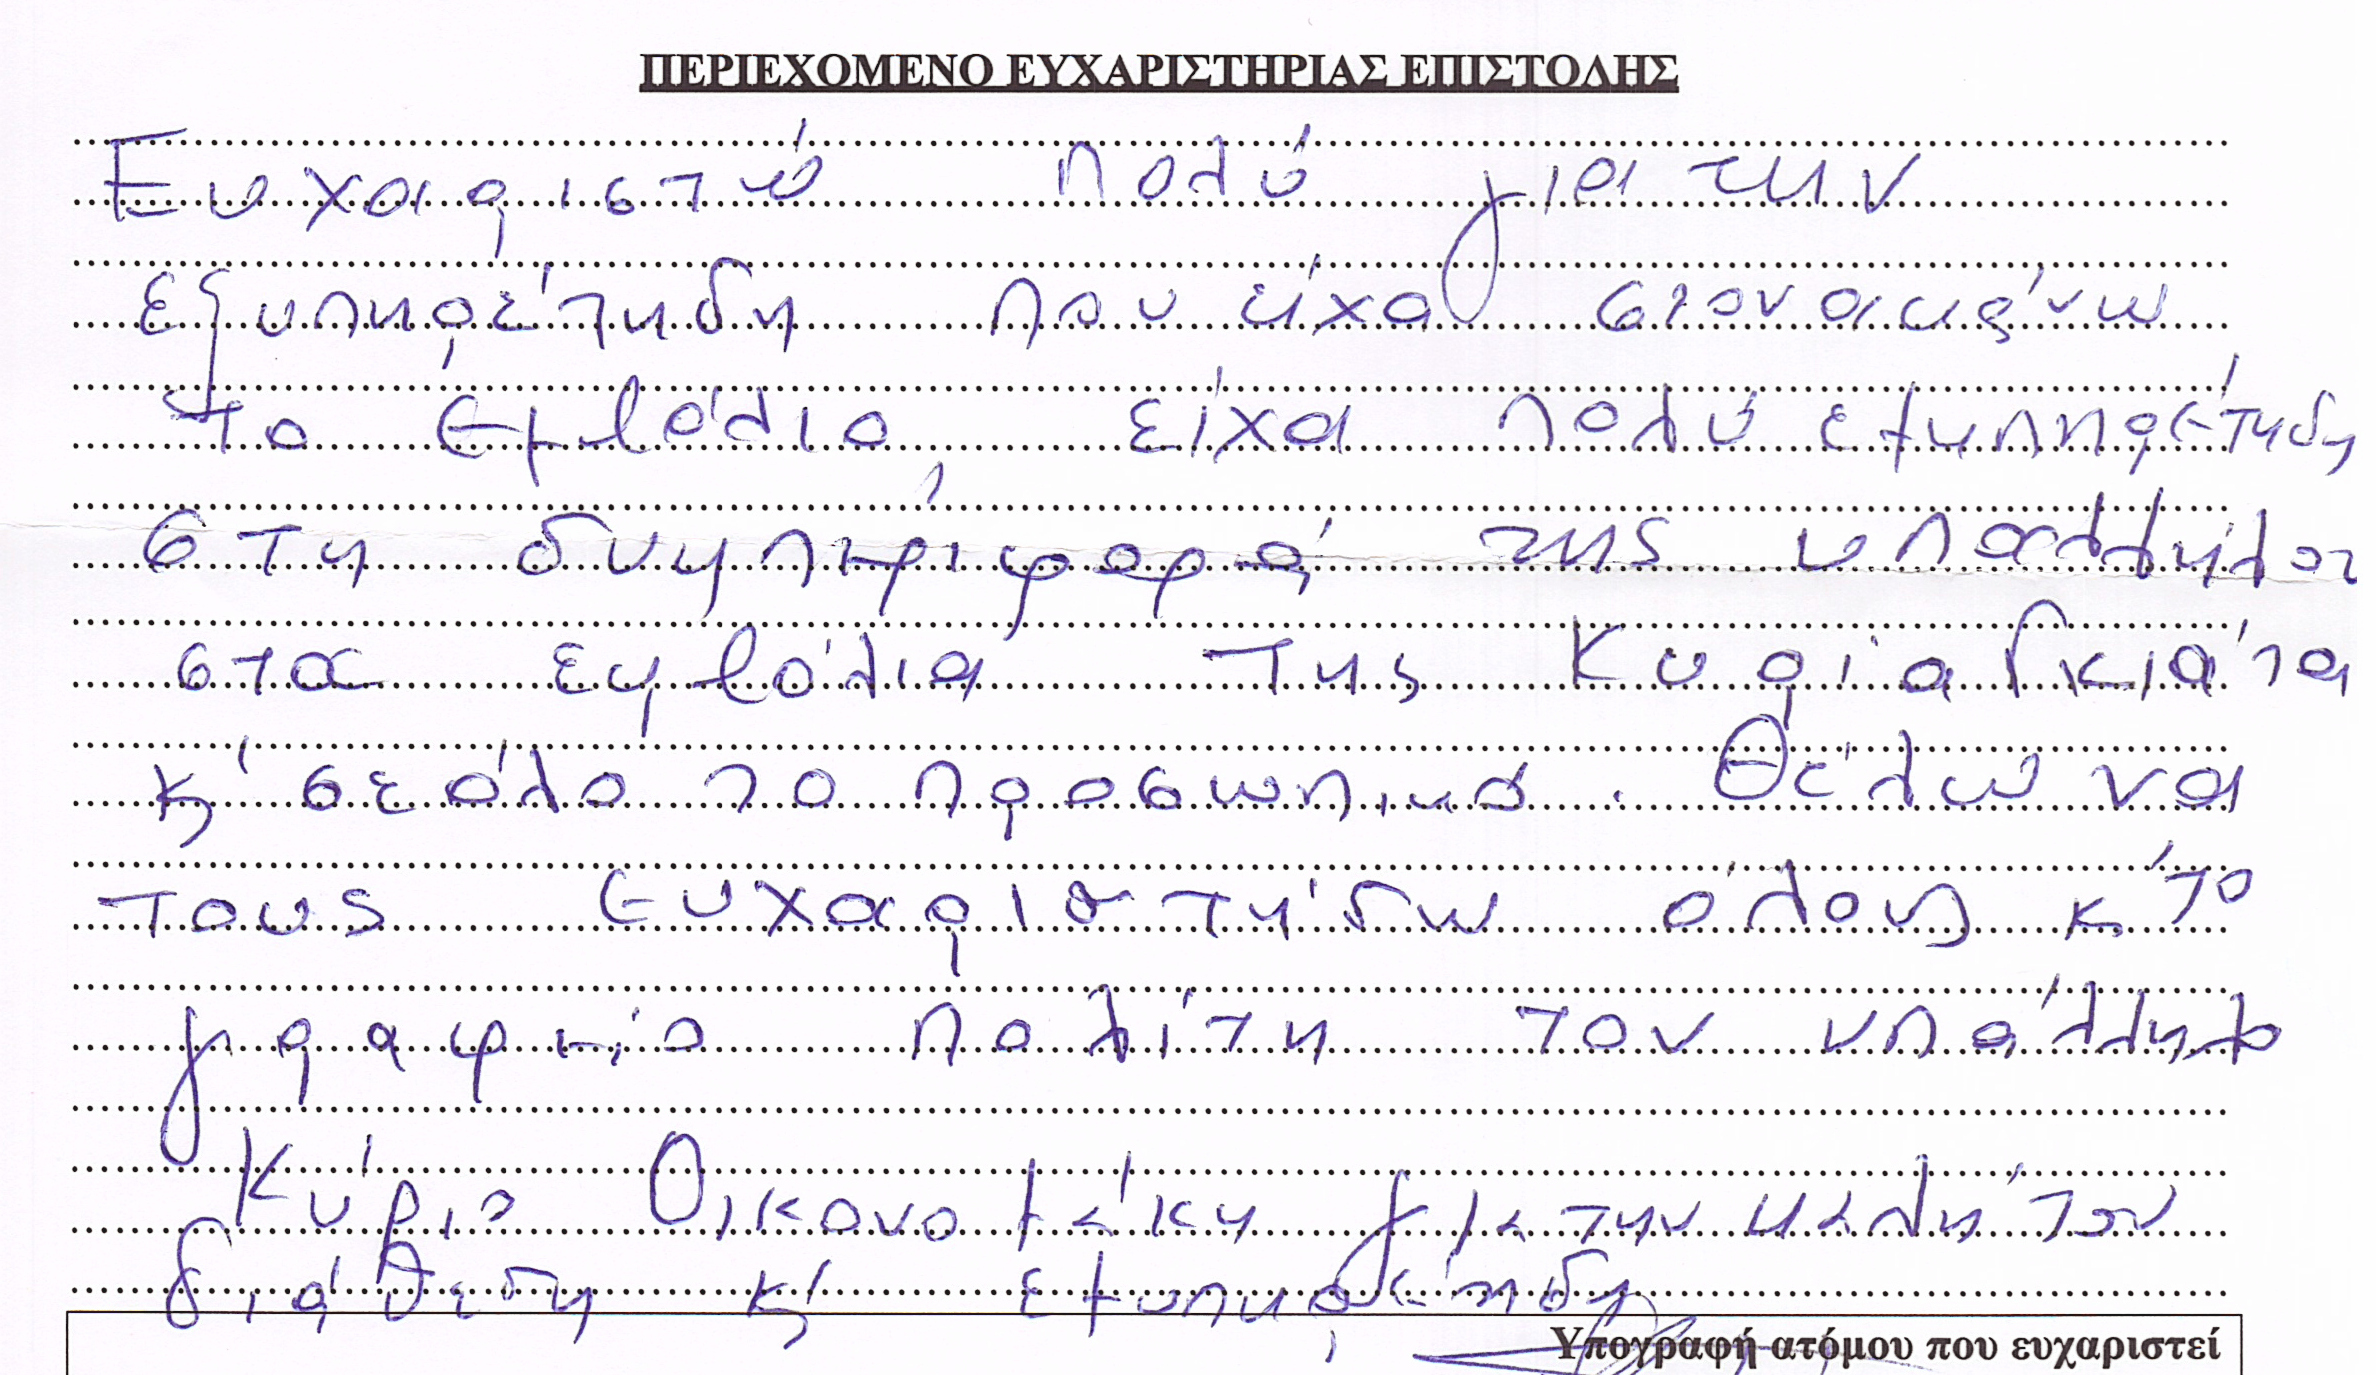 ΠΕΡΙΕΧΟΜΕΝΟ ΕΥΧΑΡΙΣΤΗΡΙΑΣ ΕΠΙΣΤΟΛΗΣ
Ευχαριστώ πολύ για την
εξυπηρέτηση που είχα στον ακάνω
το εμβόλιο, είχα πολύ εξυπηρέτηση
στη συμπεριφορά της υπαλλήλου
στα εμβόλια της Κυρία Γκιάτα
κ' σε όλο το προσωπικό. Θέλω να
τους ευχαριστήσω όλους κ' το
γραφείο πολίτη τον υπάλληλο
Κύριο Οικονομάκη για την καλή του
διάθεση κ' εξυπηρέτηση
Υπογραφή ατόμου που ευχαριστεί